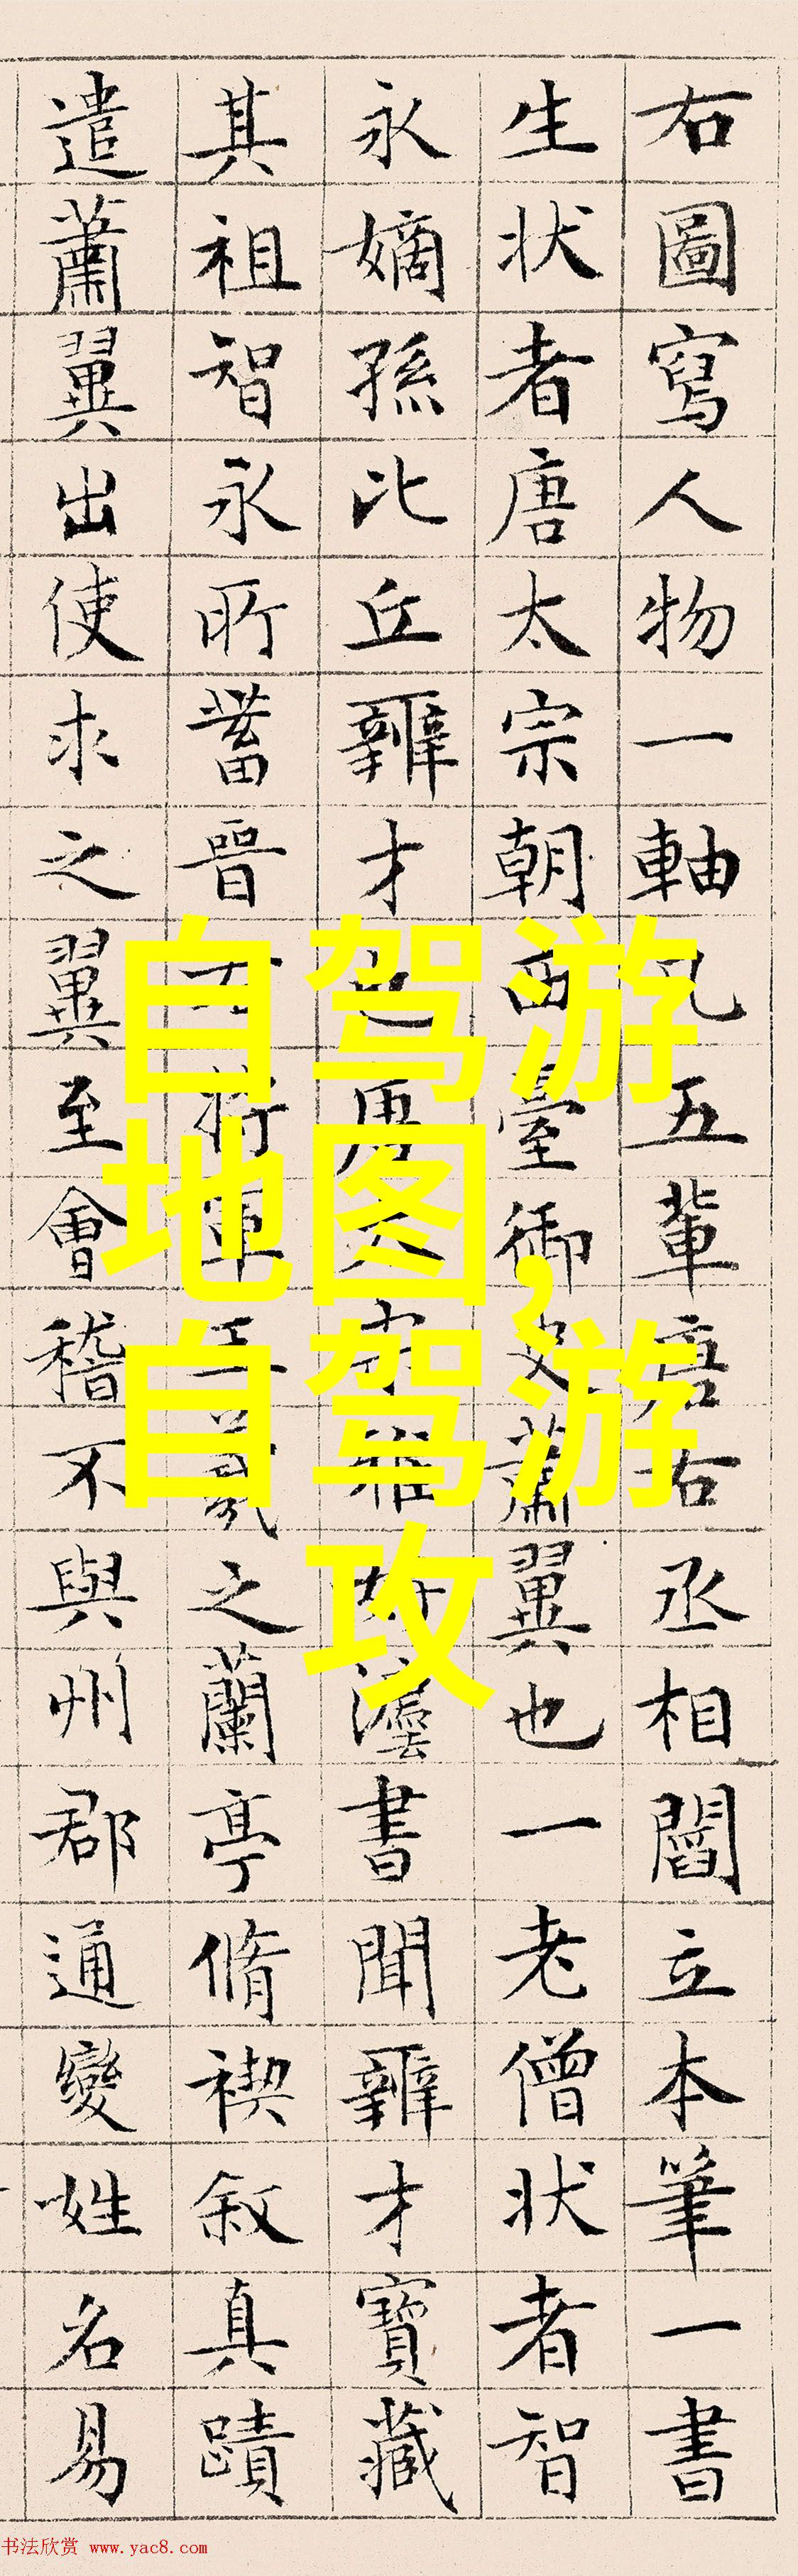 右圖寫人物一軸凡五輩唐右丞相閻立本筆一書
生状者唐太宗朝西臺御史蕭翼也一老僧状者智
永嫡孫比丘辯才也唐太宗雅好灋書聞辯才寶藏
其祖智永所蓄晉右將軍王羲之蘭亭脩禊叙真蹟
遣蕭翼出使求之翼至會稽不與州郡通變姓名易
自驾游
地图,
自驾游
攻
书法欣赏 www.yac8.com